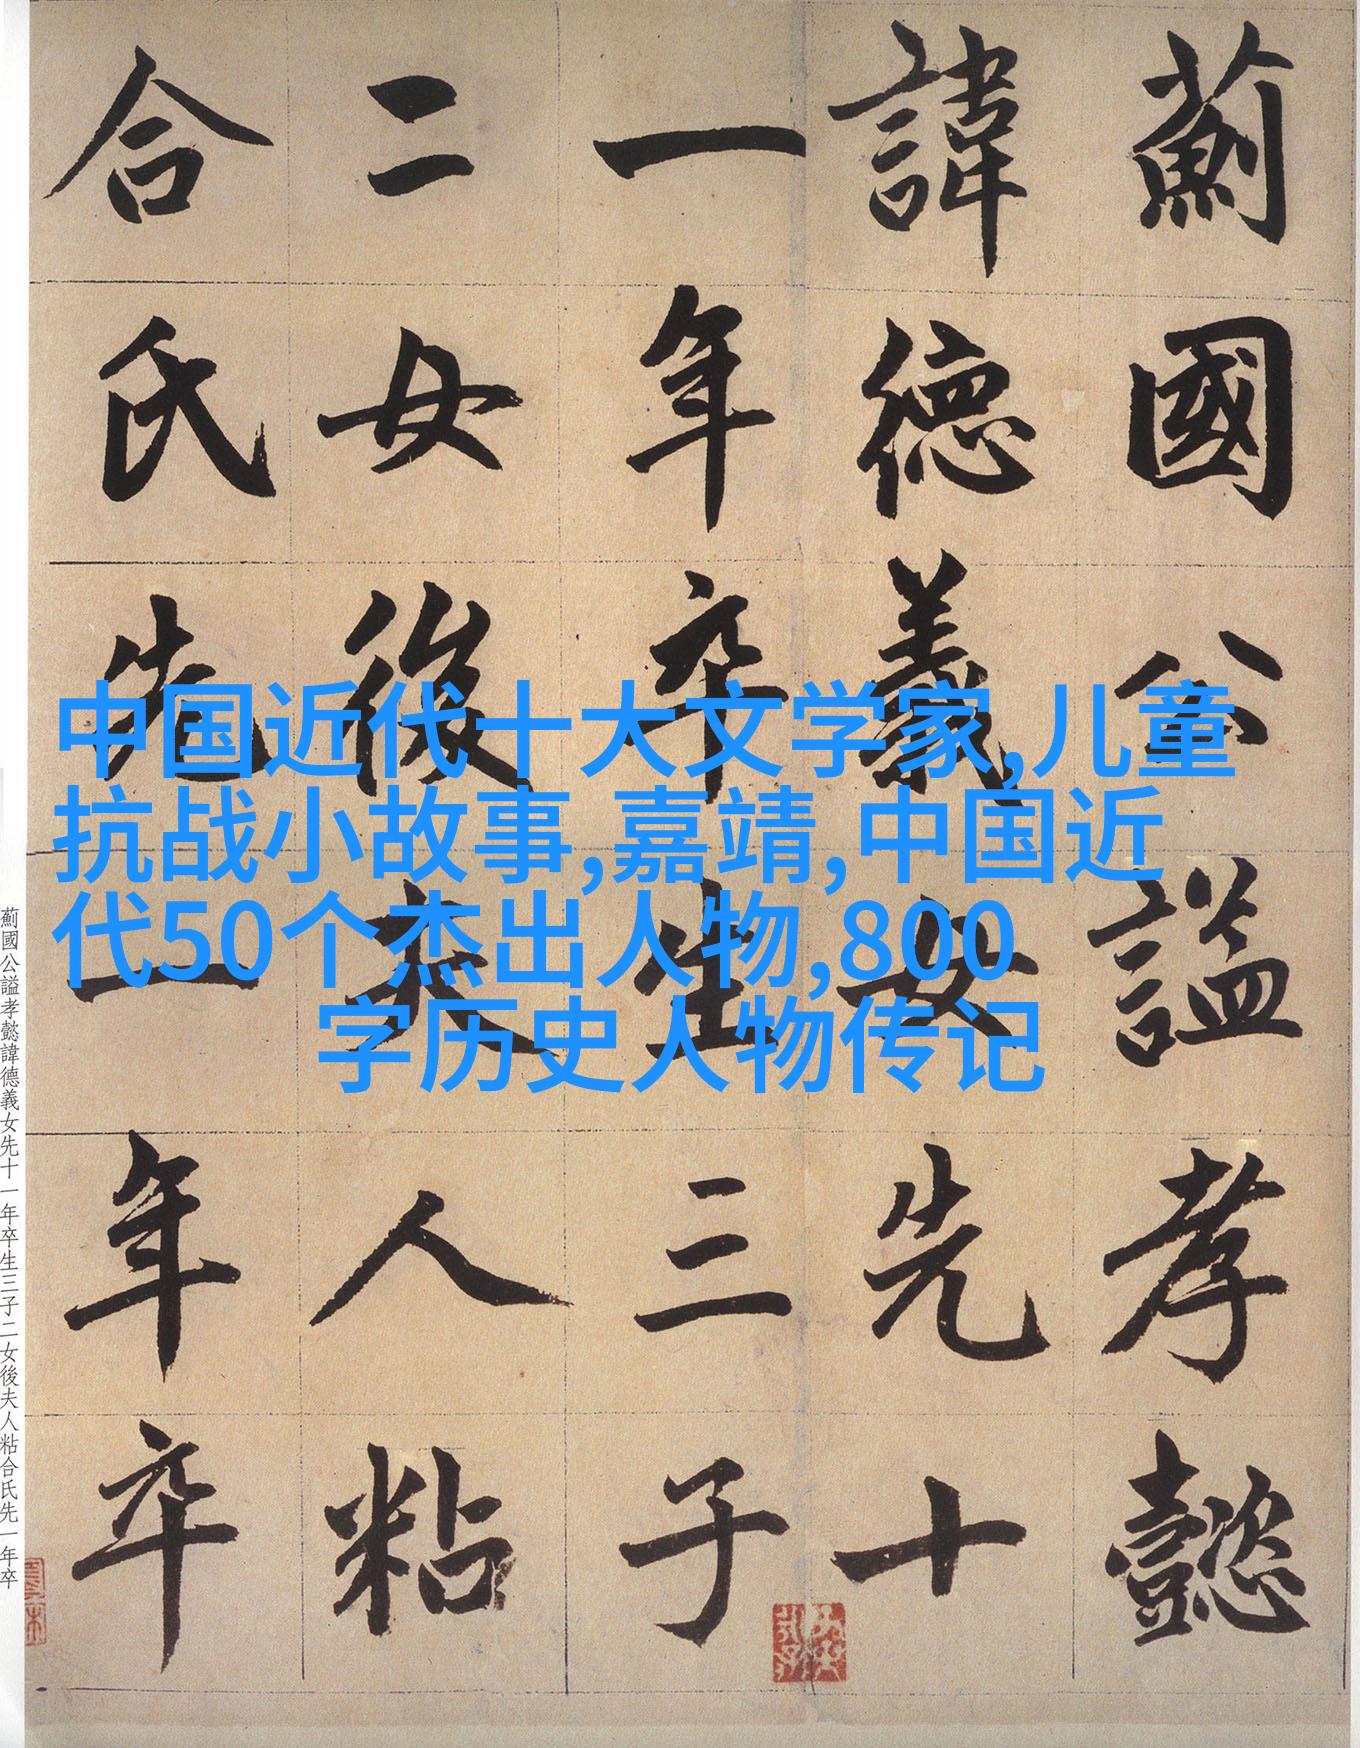 薊國公謚孝懿
諱德義女先十
一年卒生三子
二女後夫人粘
合氏先一年卒
中国近代十大文学家,儿童
抗战小故事,嘉靖,中国近
代50个杰出人物,800
字历史人物传记
薊國公謚孝懿諱德義女先十一年卒生三子二女後夫人粘合氏先一年卒